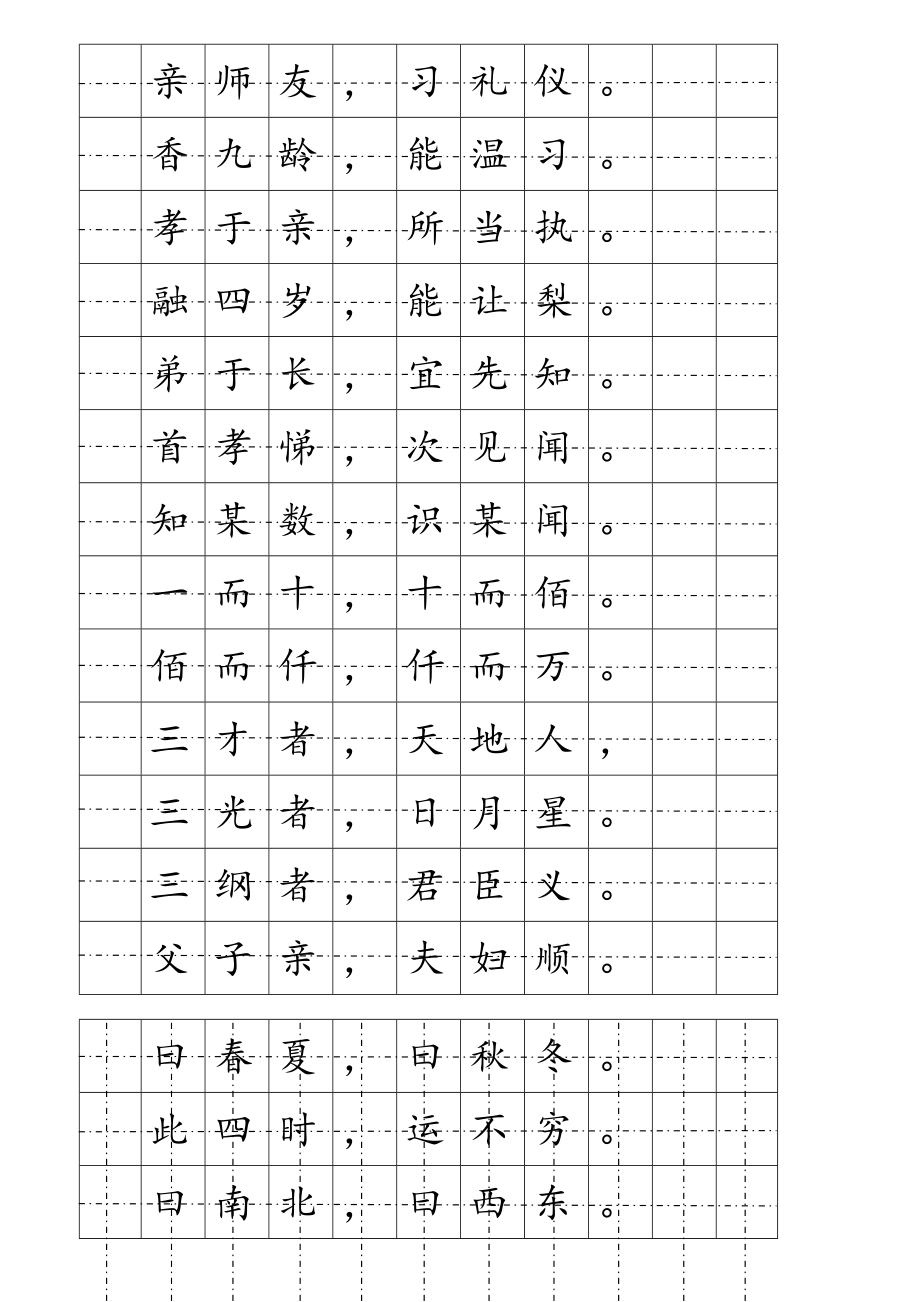 亲师友，习礼仪。
香九龄，能温习。
孝于亲，所当执。
融四岁，能让梨。
弟于长，宜先知。
首孝悌，次见闻。
知某数，识某闻。
一而十，十而佰。
佰而仟，仟而万。
三才者，天地人，
三光者，日月星。
三纲者，君臣义。
父子亲，夫妇顺。
曰春夏，曰秋冬。
此四时，运不穷。
曰南北，曰西东。